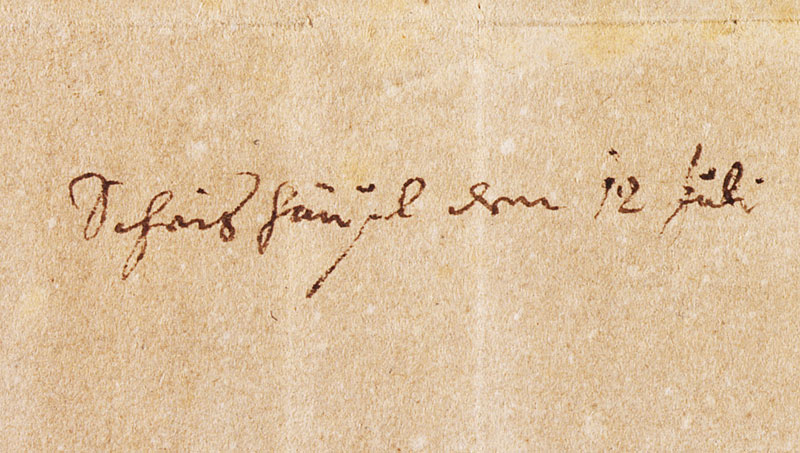 Scheishäusel den 12 Juli